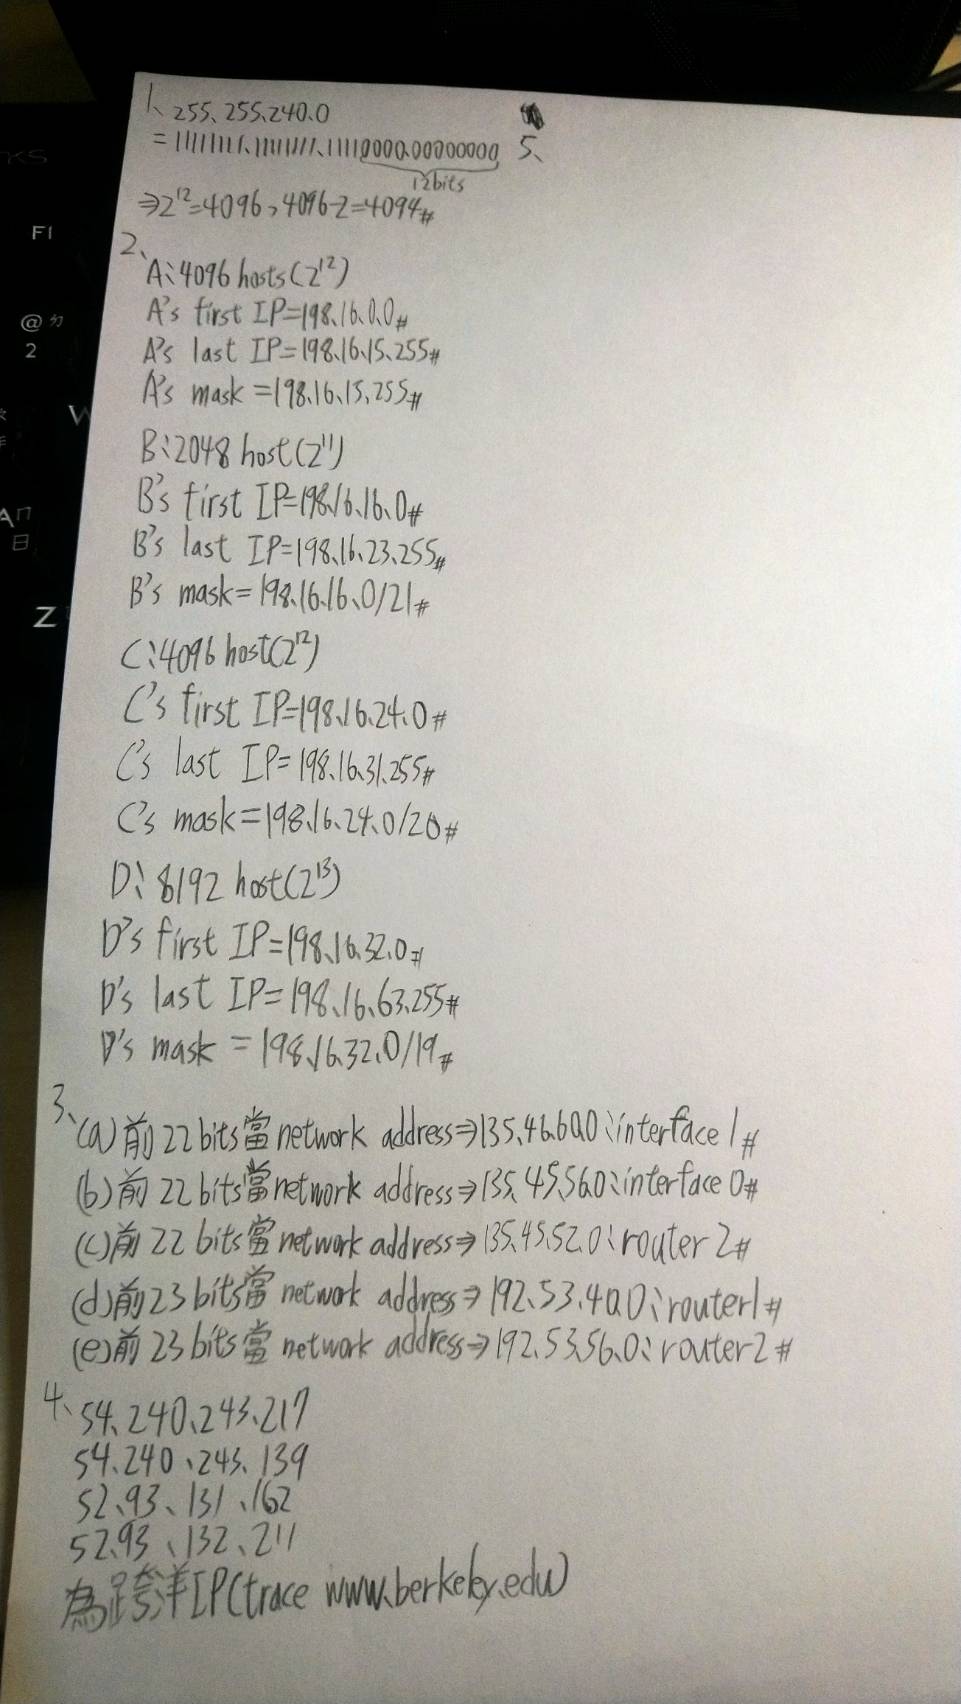 KS
F1
@ ㄅ
2
W
A
日
Z
1、255、255、240、0
=11111111、11111111、11110000、00000000
12bits
⇒2¹²=4096, 4096-2=4094#
5、
2、
A:4096 hosts(2¹²)
A's first IP=198、16、0、0#
A's last IP=198、16、15、255#
A's mask=198、16、15、255#
B:2048 host(2¹¹)
B's first IP=198、16、16、0#
B's last IP=198、16、23、255#
B's mask=198、16、16、0/21#
C:4096 host(2¹²)
C's first IP=198、16、24、0#
C's last IP=198、16、31、255#
C's mask=198、16、24、0/20#
D:8192 host(2¹³)
D's first IP=198、16、32、0#
D's last IP=198、16、63、255#
D's mask=198、16、32、0/19#
3、(a)前22bits當network address⇒135、46、60、0:interface 1#
(b)前22bits當network address⇒135、45、56、0:interface 0#
(c)前22bits當network address⇒135、45、52、0:router 2#
(d)前23bits當network address⇒192、53、40、0:router1#
(e)前23bits當network address⇒192、53、56、0:router2#
4、54、240、243、217
54、240、243、139
52、93、131、162
52、93、132、211
為跨洋IP(trace www.berkeley.edu)